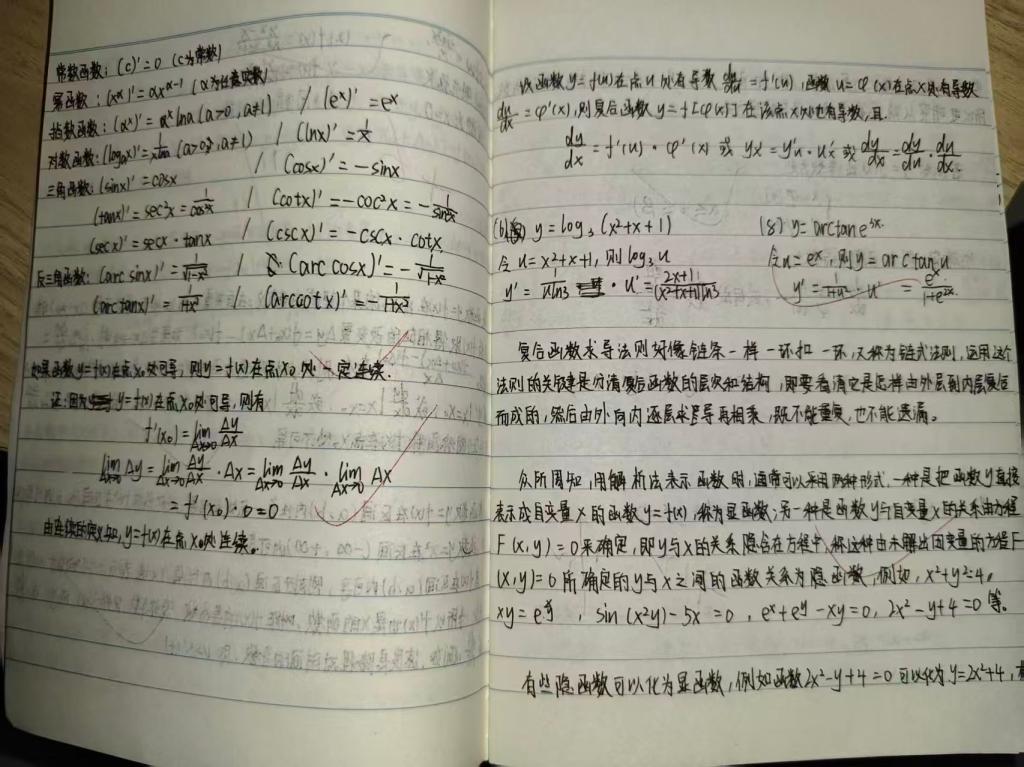 常数函数：(c)'=0 (c为常数)
幂函数：(x^α)'=αx^(α-1) (α为任意实数)
指数函数：(a^x)'=a^x lna (a>0, a≠1) / (e^x)'=e^x
对数函数：(log_a x)'=1/(xlna) (a>0, a≠1) / (lnx)'=1/x
三角函数：(sinx)'=cosx / (cosx)'=-sinx
(tanx)'=sec²x=1/cos²x / (cotx)'=-coc²x=-1/sin²x
(secx)'=secx·tanx / (cscx)'=-cscx·cotx
反三角函数：(arcsinx)'=1/√(1-x²) / (arccosx)'=-1/√(1-x²)
(arctanx)'=1/(1+x²) / (arccotx)'=-1/(1+x²)
如果函数y=f(x)在点x₀处可导，则y=f(x)在点x₀处一定连续.
证：因为y=f(x)在点x₀处可导，则有
f'(x₀)=lim(Δx→0) Δy/Δx
lim(Δx→0) Δy=lim(Δx→0) Δy/Δx·Δx=lim(Δx→0) Δy/Δx·lim(Δx→0) Δx
=f'(x₀)·0=0
由连续的定义知，y=f(x)在点x₀处连续。
设函数y=f(u)在点u处有导数dy/du=f'(u)，函数u=φ(x)在点x处有导数
du/dx=φ'(x)，则复合函数y=f[φ(x)]在该点x处也有导数，且
dy/dx=f'(u)·φ'(x) 或 y'x=y'u·u'x 或 dy/dx=dy/du·du/dx.
(6) y=log₃(x²+x+1) (8) y=arctane^x.
令u=x²+x+1，则log₃u 令u=e^x，则y=arctanu
y'=1/(uln3)·u'=(2x+1)/((x²+x+1)ln3) y'=1/(1+u²)·u'=e^x/(1+e^2x)
复合函数求导法则好像链条一样一环扣一环，又称为链式法则，运用这个
法则的关键是分清复合函数的层次和结构，即要看清它是怎样由外层到内层复合
而成的，然后由外向内逐层求导再相乘，既不能重复，也不能遗漏。
众所周知，用解析法表示函数时，通常可以采用两种形式，一种是把函数y直接
表示成自变量x的函数y=f(x)，称为显函数；另一种是函数y与自变量x的关系由方程
F(x,y)=0来确定，即y与x的关系隐含在方程中，称这种由未解出因变量的方程F
(x,y)=0所确定的y与x之间的函数关系为隐函数，例如，x²+y²=4,
xy=e^y, sin(x²y)-5x=0, e^x+e^y-xy=0, 2x²-y+4=0等。
有些隐函数可以化为显函数，例如函数2x²-y+4=0可以化为y=2x²+4，